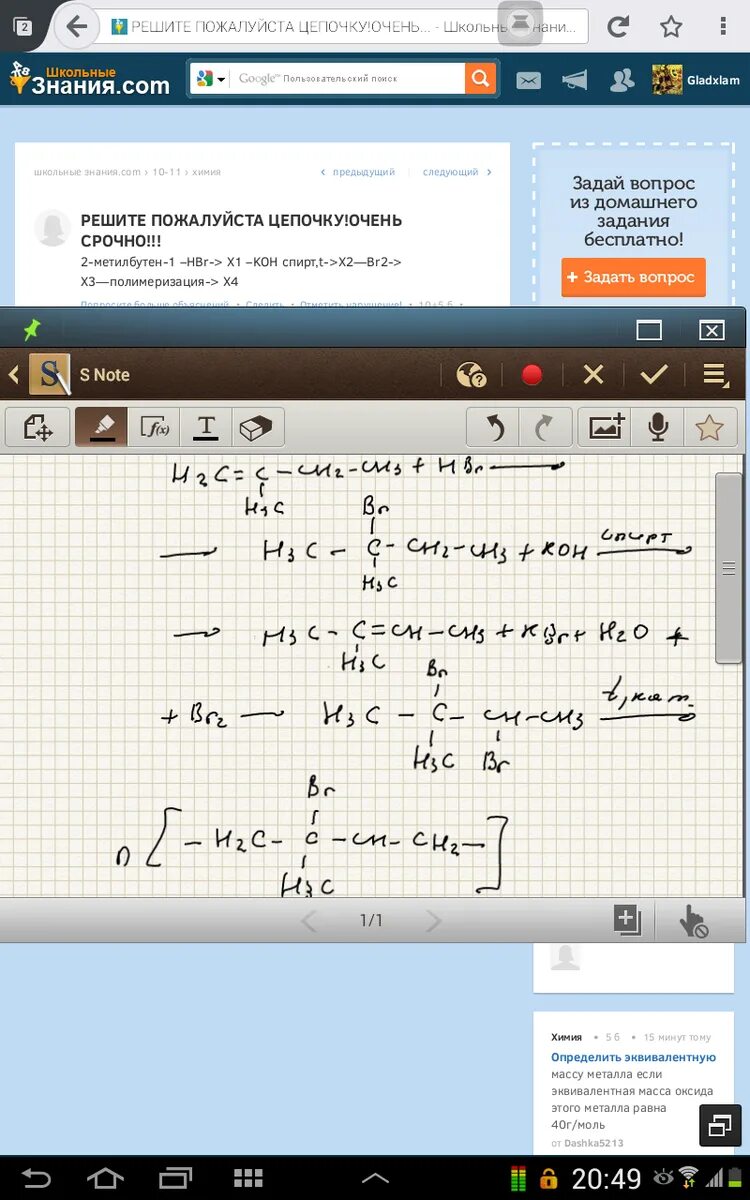 2
РЕШИТЕ ПОЖАЛУЙСТА ЦЕПОЧКУ!ОЧЕНЬ... - Школьн
Знани...
Школьные
Знания.com
Google™ Пользовательский поиск
Gladxlam
школьные знания.com › 10-11 › химия
‹ предыдущий
следующий ›
РЕШИТЕ ПОЖАЛУЙСТА ЦЕПОЧКУ!ОЧЕНЬ
СРОЧНО!!!
2-метилбутен-1 –HBr-> X1 –KOH спирт,t->X2—Br2->
X3—полимеризация-> X4
Попросите больше объяснений • Следить • Отметить нарушение! • 10+5 б •
Задай вопрос
из домашнего
задания
бесплатно!
+ Задать вопрос
S Note
f(x)
T
H2C=C-CH2-CH3 + HBr →
H3C
Br
→ H3C - C - CH2-CH3 + KOH спирт →
H3C
→ H3C - C = CH - CH3 + KBr + H2O +
H3C
Br
+ Br2 — H3C - C - CH-CH3 t, кат. →
H3C Br
Br
n [ - H2C - C - CH - CH2 - ]
H3C
1/1
Химия • 5 б • 15 минут тому
Определить эквивалентную
массу металла если
эквивалентная масса оксида
этого металла равна
40г/моль
от Dashka5213
20:49